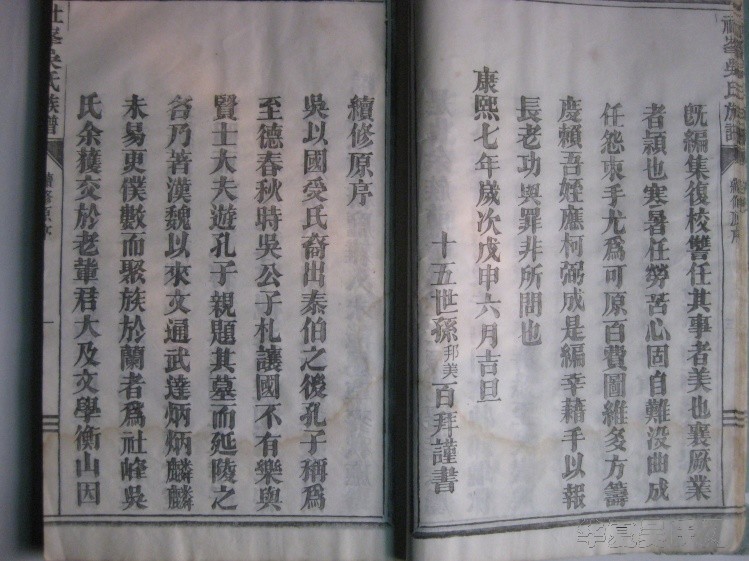 既編集復校讐任其事者美也襄厥業
者頴也寒暑任勞苦心固自難没曲成
任怨束手尤爲可原百費圖維多方籌
慶賴吾姪應柯弼成是編幸藉手以報
長老功與罪非所問也
康熙七年歲次戊申六月吉旦
十五世孫邦美百拜謹書
社峯吳氏族譜
續修原序
一
續修原序
吳以國受氏裔出泰伯之後孔子稱爲
至德春秋時吳公子札讓國不有樂與
賢士大夫遊孔子親題其墓而延陵之
名乃著漢魏以來文通武達炳炳麟麟
未易更僕數而聚族於蘭者爲社峰吳
氏余獲交於老輩君大及文學衡山因